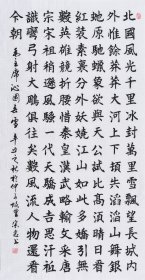 北國風光千里冰封萬里雪飄望長城内
外惟餘莽莽大河上下頓失滔滔山舞銀
蛇原馳蠟象欲與天公試比高須晴日看
紅裝素裹分外妖嬈江山如此多嬌引無
數英雄競折腰惜秦皇漢武略輸文采唐
宗宋祖稍遜風騷一代天驕成吉思汗只
識彎弓射大鵰俱往矣數風流人物還看
今朝 毛主席沁園春雪